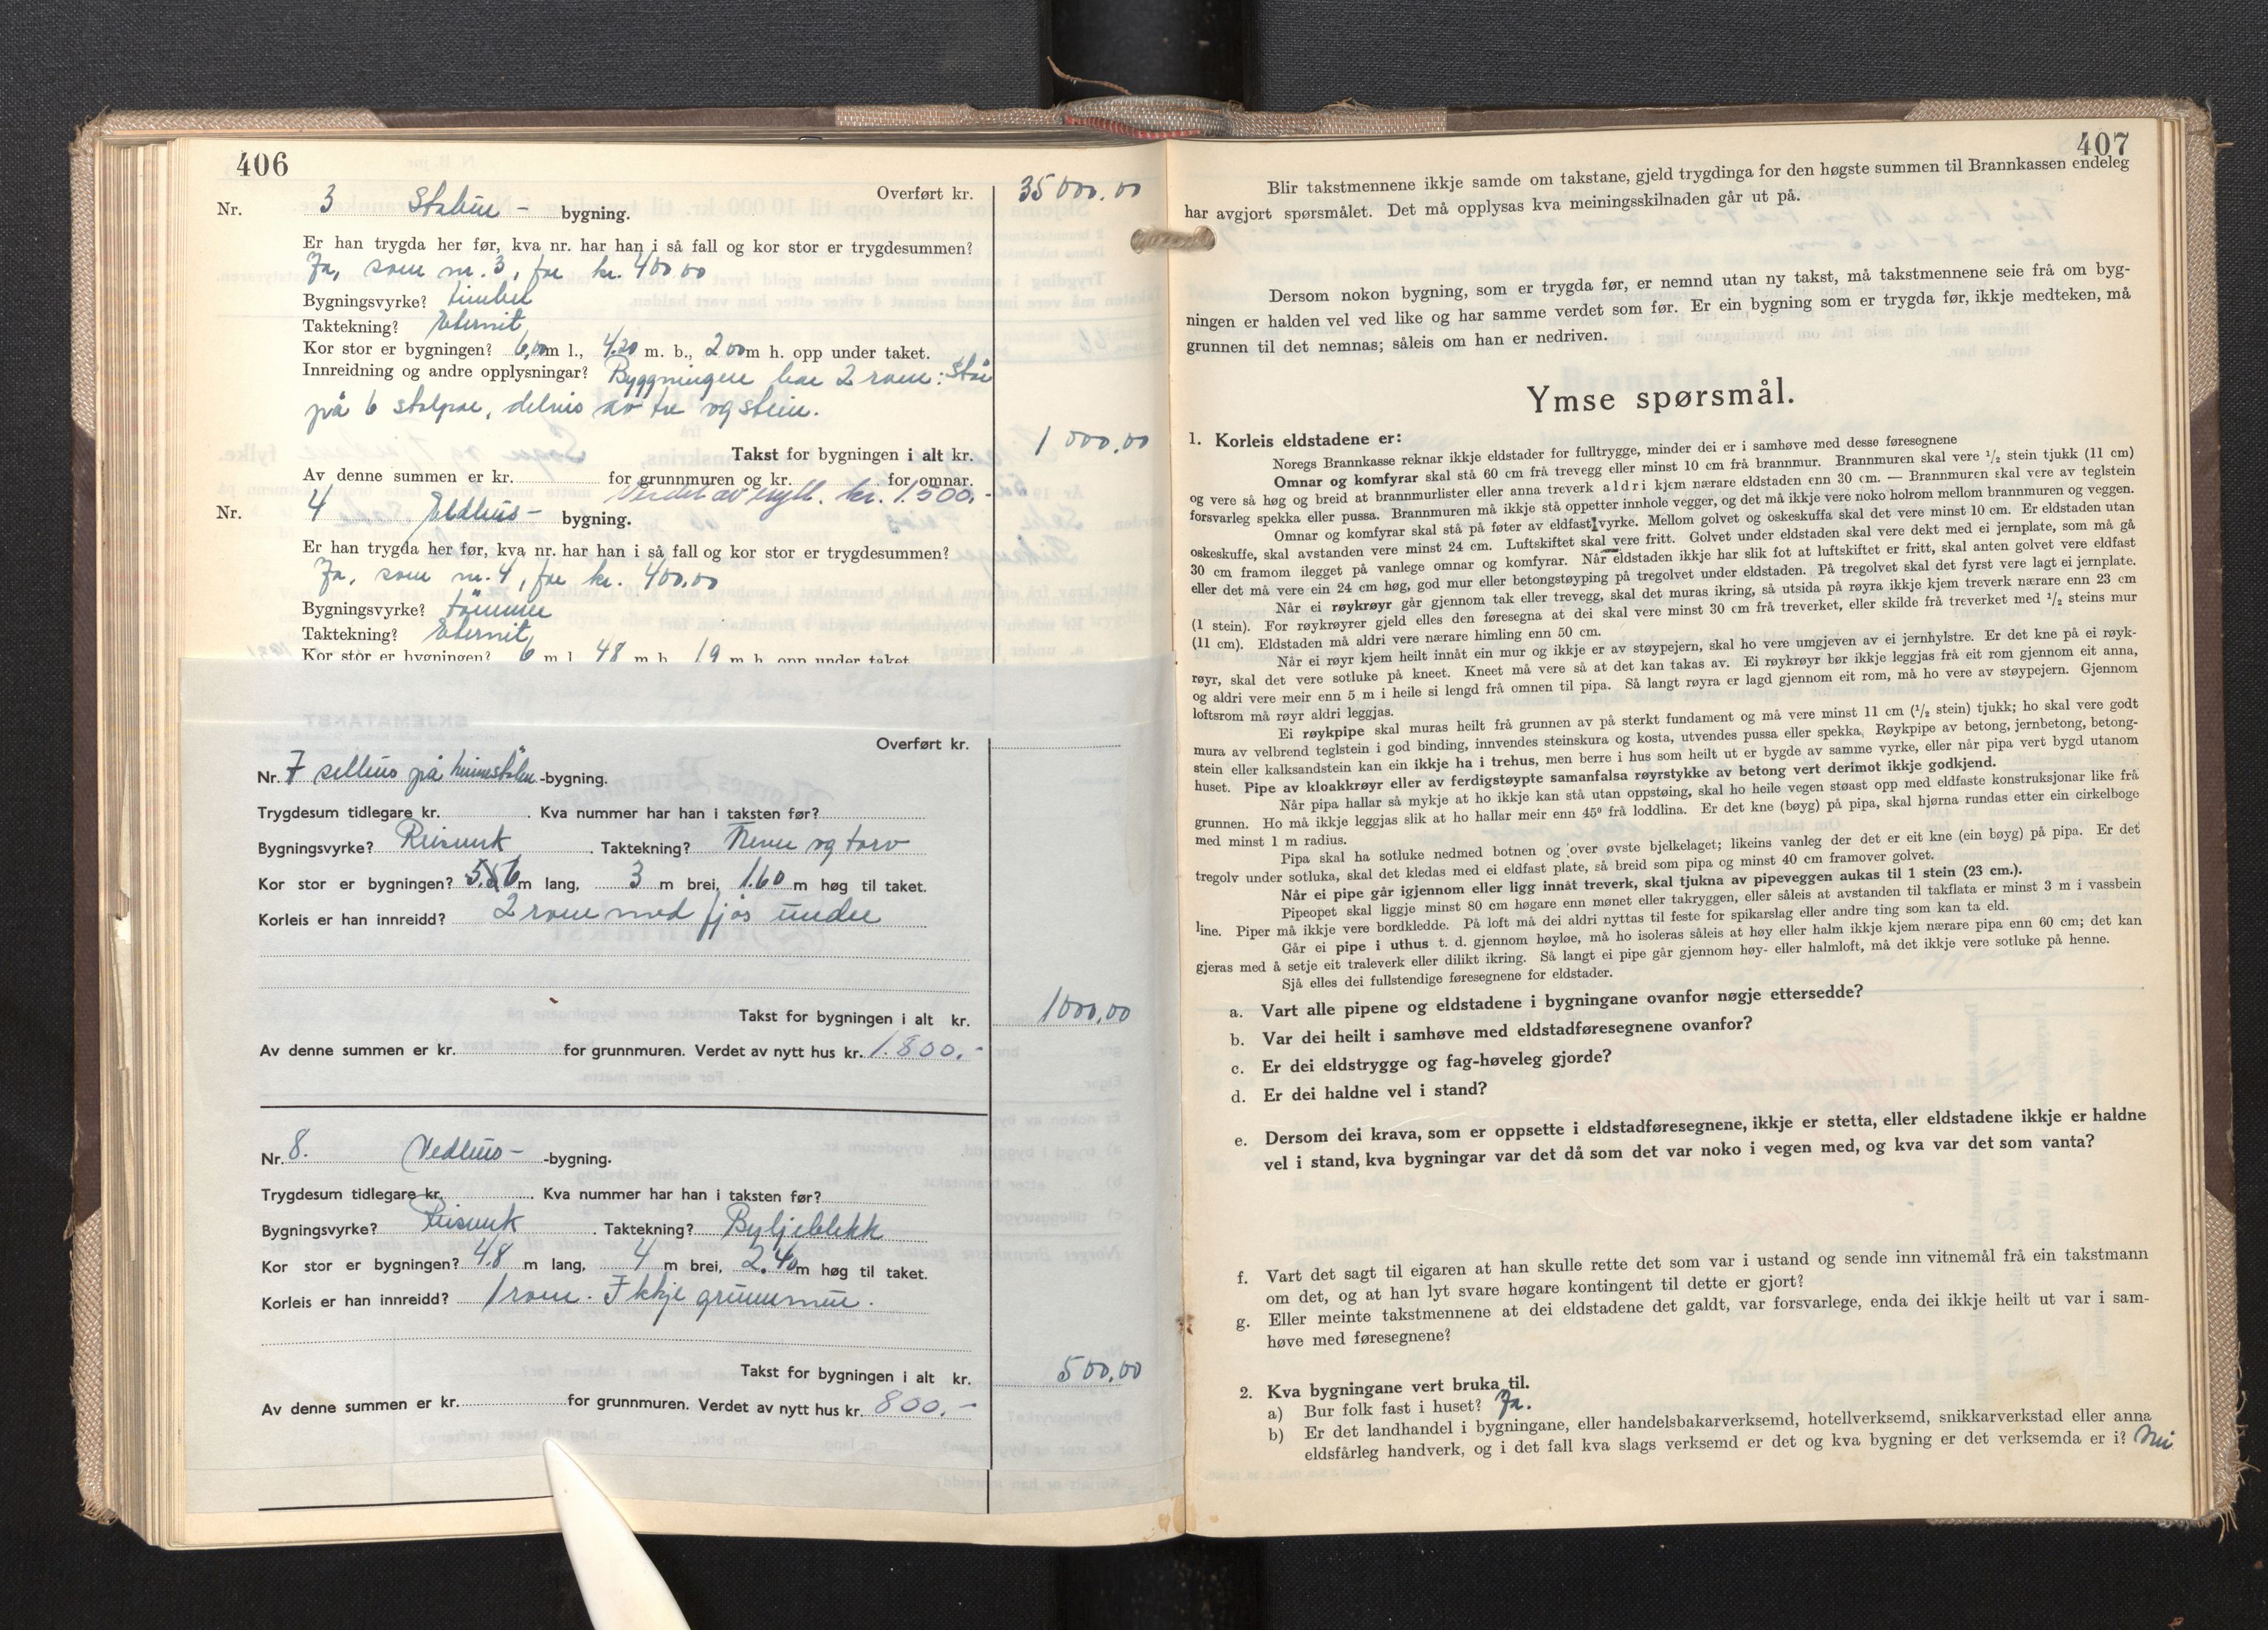 406
Overført kr. 35 000.00
Nr. 3 Stabur - bygning.
Er han trygda her før, kva nr. har han i så fall og kor stor er trygdesummen?
Ja, som nr. 3, for kr. 400.00
Bygningsvyrke? timber
Taktekning? Eternit
Kor stor er bygningen? 6,00 m l., 4.20 m. b., 2.00 m h. opp under taket.
Innreidning og andre opplysningar? Byggningen har 2 rom: Står
på 6 stolpar, delvis av tre og stein.
Takst for bygningen i alt kr. 1 000.00
Av denne summen er kr. for grunnmuren og kr. for omnar.
Verdet av nytt. kr. 1500.-
Nr. 4 Eldhus - bygning.
Er han trygda her før, kva nr. har han i så fall og kor stor er trygdesummen?
Ja, som nr. 4, for kr. 400.00
Bygningsvyrke? tømmer
Taktekning? Eternit
Kor stor er bygningen? 6 m l. 48 m b. 19 m h. opp under taket.
Overført kr.
Nr. 7 selhus på heimestølen -bygning.
Trygdesum tidlegare kr. . Kva nummer har han i taksten før?
Bygningsvyrke? Reisverk . Taktekning? Never og torv
Kor stor er bygningen? 5.56 m lang, 3 m brei, 1.60 m høg til taket.
Korleis er han innreidd? 2 rom med fjøs under
Takst for bygningen i alt kr. 1000.00
Av denne summen er kr. for grunnmuren. Verdet av nytt hus kr. 1.800.-
Nr. 8. Vedhus - -bygning.
Trygdesum tidlegare kr. . Kva nummer har han i taksten før?
Bygningsvyrke? Reisverk . Taktekning? Bylgjeblekk
Kor stor er bygningen? 4.8 m lang, 4 m brei, 2.40 m høg til taket.
Korleis er han innreidd? 1 rom. Ikkje grunnmur.
Takst for bygningen i alt kr. 500.00
Av denne summen er kr. for grunnmuren. Verdet av nytt hus kr. 800.-
407
Blir takstmennene ikkje samde om takstane, gjeld trygdinga for den høgste summen til Brannkassen endeleg
har avgjort spørsmålet. Det må opplysas kva meiningsskilnaden går ut på.
Dersom nokon bygning, som er trygda før, er nemnd utan ny takst, må takstmennene seie frå om byg-
ningen er halden vel ved like og har samme verdet som før. Er ein bygning som er trygda før, ikkje medteken, må
grunnen til det nemnas; såleis om han er nedriven.
Ymse spørsmål.
1. Korleis eldstadene er:
Noregs Brannkasse reknar ikkje eldstader for fulltrygge, minder dei er i samhøve med desse føresegnene
Omnar og komfyrar skal stå 60 cm frå trevegg eller minst 10 cm frå brannmur. Brannmuren skal vere 1/2 stein tjukk (11 cm)
og vere så høg og breid at brannmurlister eller anna treverk aldri kjem nærare eldstaden enn 30 cm. — Brannmuren skal vere av teglstein
forsvarleg spekka eller pussa. Brannmuren må ikkje stå oppetter innhole vegger, og det må ikkje vere noko holrom mellom brannmuren og veggen.
Omnar og komfyrar skal stå på føter av eldfast vyrke. Mellom golvet og oskeskuffa skal det vere minst 10 cm. Er eldstaden utan
oskeskuffe, skal avstanden vere minst 24 cm. Luftskiftet skal vere fritt. Golvet under eldstaden skal vere dekt med ei jernplate, som må gå
30 cm framom ilegget på vanlege omnar og komfyrar. Når eldstaden ikkje har slik fot at luftskiftet er fritt, skal anten golvet vere eldfast
eller det må vere ein 24 cm høg, god mur eller betongstøyping på tregolvet under eldstaden. På tregolvet skal det fyrst vere lagt ei jernplate.
Når ei røykrøyr går gjennom tak eller trevegg, skal det muras ikring, så utsida på røyra ikkje kjem treverk nærare enn 23 cm
(1 stein). For røykrøyrer gjeld elles den føresegna at dei skal vere minst 30 cm frå treverket, eller skilde frå treverket med 1/2 steins mur
(11 cm). Eldstaden må aldri vere nærare himling enn 50 cm.
Når ei røyr kjem heilt innåt ein mur og ikkje er av støypejern, skal ho vere umgjeven av ei jernhylstre. Er det kne på ei røyk-
røyr, skal det vere sotluke på kneet. Kneet må vere så at det kan takas av. Ei røykrøyr bør ikkje leggjas frå eit rom gjennom eit anna,
og aldri vere meir enn 5 m i heile si lengd frå omnen til pipa. Så langt røyra er lagd gjennom eit rom, må ho vere av støypejern. Gjennom
loftsrom må røyr aldri leggjas.
Ei røykpipe skal muras heilt frå grunnen av på sterkt fundament og må vere minst 11 cm (1/2 stein) tjukk; ho skal vere godt
mura av velbrend teglstein i god binding, innvendes steinskura og kosta, utvendes pussa eller spekka. Røykpipe av betong, jernbetong, betong-
stein eller kalksandstein kan ein ikkje ha i trehus, men berre i hus som heilt ut er bygde av samme vyrke, eller når pipa vert bygd utanom
huset. Pipe av kloakkrøyr eller av ferdigstøypte samanfalsa røyrstykke av betong vert derimot ikkje godkjend.
Når pipa hallar så mykje at ho ikkje kan stå utan oppstøing, skal ho heile vegen støast opp med eldfaste konstruksjonar like frå
grunnen. Ho må ikkje leggjas slik at ho hallar meir enn 45° frå loddlina. Er det kne (bøyg) på pipa, skal hjørna rundas etter ein cirkelboge
med minst 1 m radius.
Pipa skal ha sotluke nedmed botnen og over øvste bjelkelaget; likeins vanleg der det er eit kne (ein bøyg) på pipa. Er det
tregolv under sotluka, skal det kledas med ei eldfast plate, så breid som pipa og minst 40 cm framover golvet.
Når ei pipe går igjennom eller ligg innåt treverk, skal tjukna av pipeveggen aukas til 1 stein (23 cm.).
Pipeopet skal liggje minst 80 cm høgare enn mønet eller takryggen, eller såleis at avstanden til takflata er minst 3 m i vassbein
line. Piper må ikkje vere bordkledde. På loft må dei aldri nyttas til feste for spikarslag eller andre ting som kan ta eld.
Går ei pipe i uthus t. d. gjennom høyløe, må ho isoleras såleis at høy eller halm ikkje kjem nærare pipa enn 60 cm; det kan
gjeras med å setje eit traleverk eller dilikt ikring. Så langt ei pipe går gjennom høy- eller halmloft, må det ikkje vere sotluke på henne.
Sjå elles dei fullstendige føresegnene for eldstader.
a. Vart alle pipene og eldstadene i bygningane ovanfor nøgje ettersedde?
b. Var dei heilt i samhøve med eldstadføresegnene ovanfor?
c. Er dei eldstrygge og fag-høveleg gjorde?
d. Er dei haldne vel i stand?
e. Dersom dei krava, som er oppsette i eldstadføresegnene, ikkje er stetta, eller eldstadene ikkje er haldne
vel i stand, kva bygningar var det då som det var noko i vegen med, og kva var det som vanta?
f. Vart det sagt til eigaren at han skulle rette det som var i ustand og sende inn vitnemål frå ein takstmann
om det, og at han lyt svare høgare kontingent til dette er gjort?
g. Eller meinte takstmennene at dei eldstadene det galdt, var forsvarlege, enda dei ikkje heilt ut var i sam-
høve med føresegnene?
2. Kva bygningane vert bruka til.
a) Bur folk fast i huset? Ja.
b) Er det landhandel i bygningane, eller handelsbakarverksemd, hotellverksemd, snikkarverkstad eller anna
eldsfårleg handverk, og i det fall kva slags verksemd er det og kva bygning er det verksemda er i? Nei